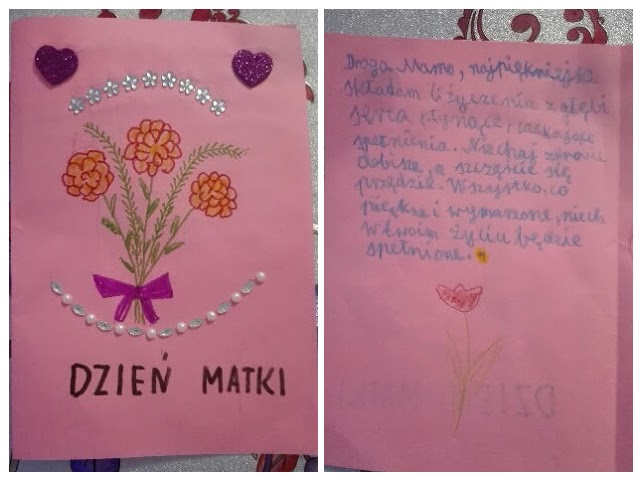 DZIEŃ MATKI
Droga Mamo, najpiękniejsze
składam Ci życzenia z głębi
serca płynące, czekające
spełnienia. Niechaj zdrowie
dobisze, a szczęście się
przędzie. Wszystko, co
piękne i wymarzone, niech
w twoim życiu będzie
spełnione.